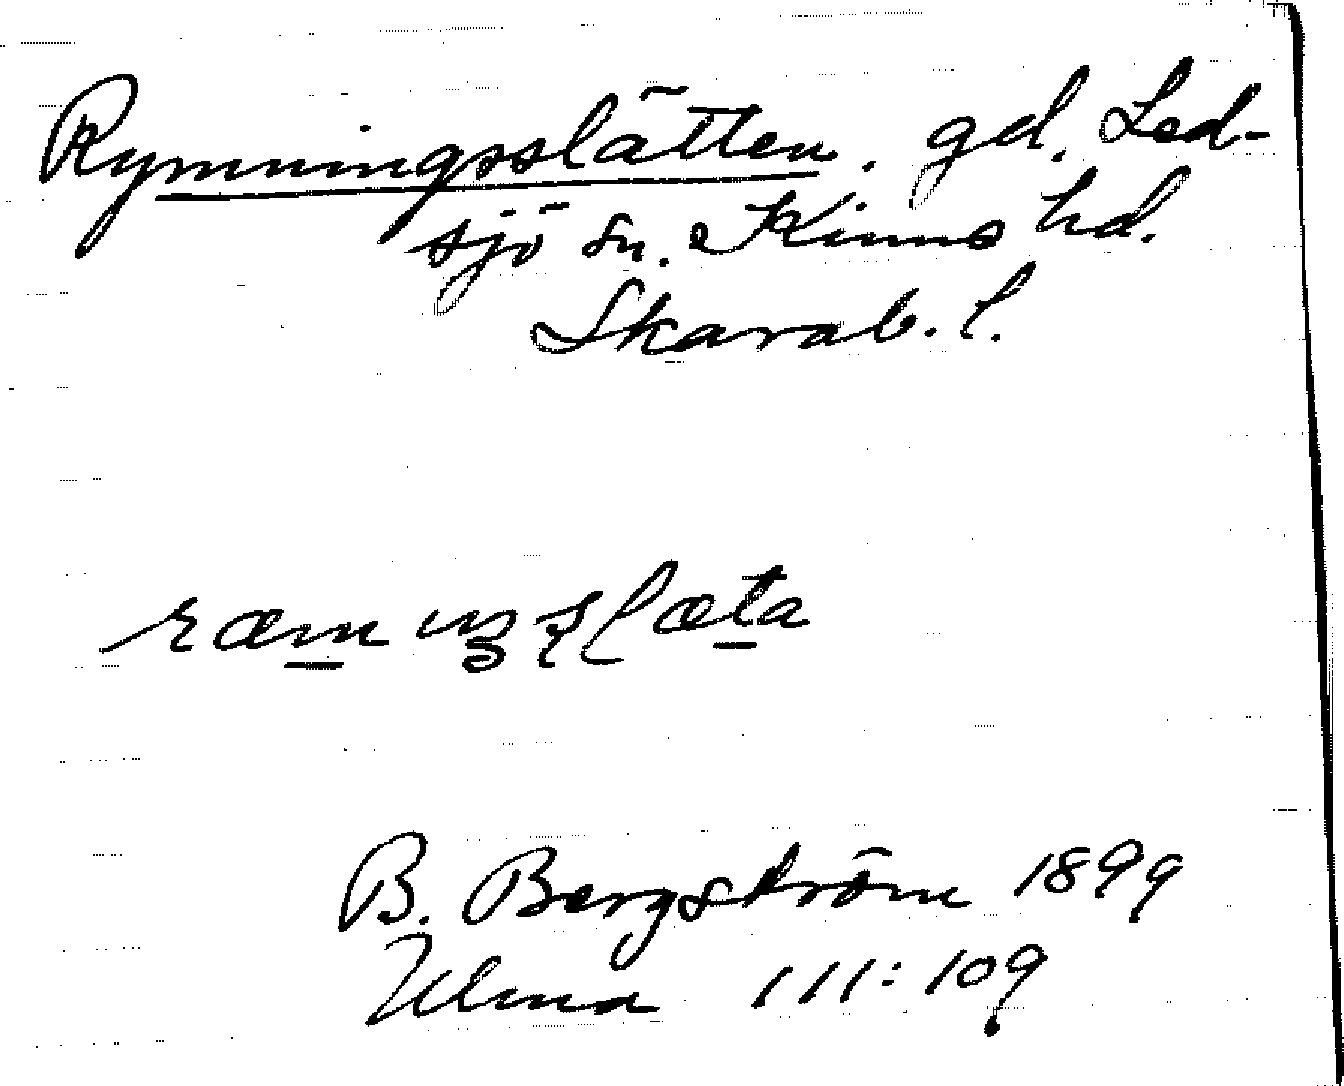 Rymningsslätten. gd. Led-
sjö sn. Kinne hd.
Skarab. l.
ræmıŋslæta
B. Bergström 1899
Ulma 111:109